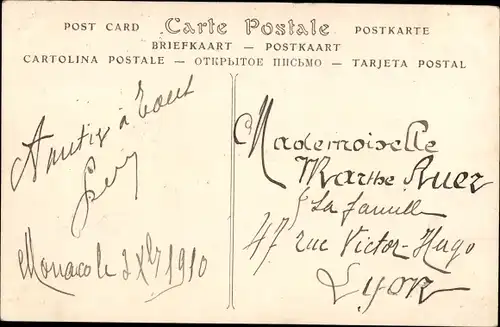 POST CARD Carte Postale POSTKARTE
BRIEFKAART — POSTKAART
CARTOLINA POSTALE — ОТКРЫТОЕ ПИСЬМО — TARJETA POSTAL
à tous
Monaco le 2 Xbre 1910
Mademoiselle
Marthe Ruez
La famille
47 rue Victor-Hugo
Lyon